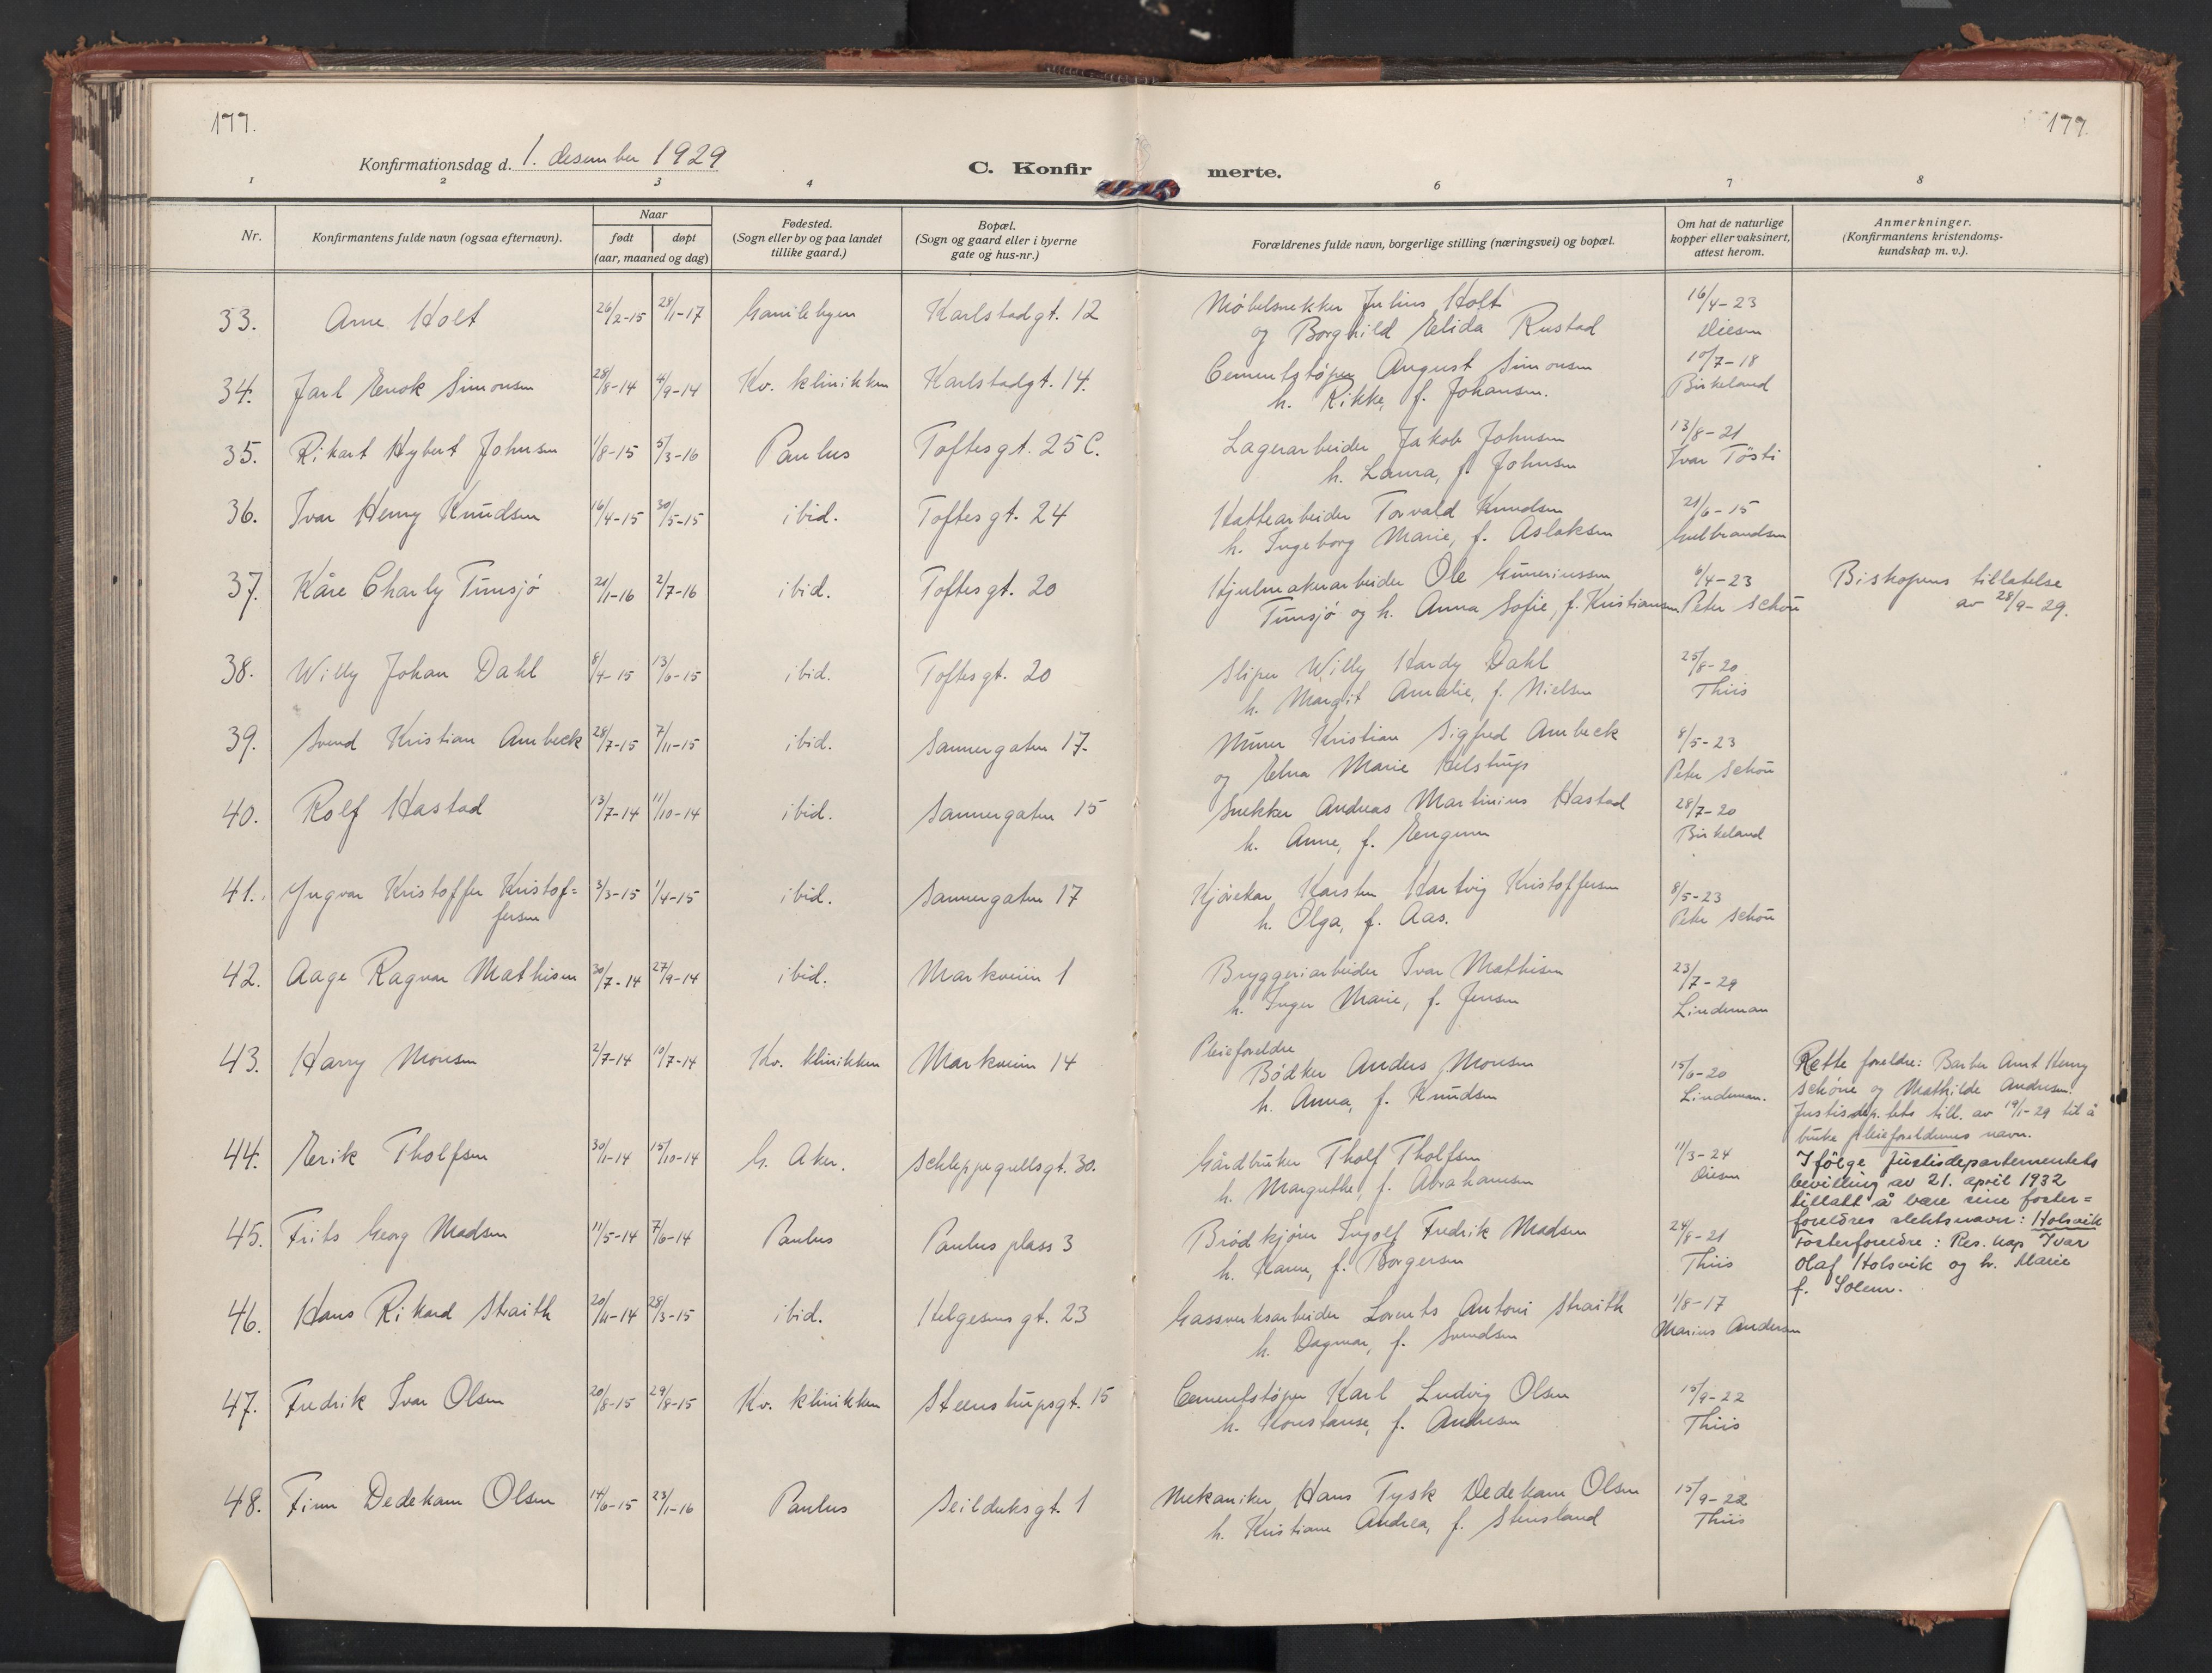 177.
177.
Konfirmationsdag d. 1. desember 1929
C. Konfir merte.
1 2 3 4 6 7 8
Nr.
Konfirmantens fulde navn (ogsaa efternavn).
Naar
født døpt
(aar, maaned og dag)
Fødested.
(Sogn eller by og paa landet
tillike gaard.)
Bopæl.
(Sogn og gaard eller i byerne
gate og hus-nr.)
Forældrenes fulde navn, borgerlige stilling (næringsvei) og bopæl.
Om hat de naturlige
kopper eller vaksinert,
attest herom.
Anmerkninger.
(Konfirmantens kristendoms-
kundskap m. v.).
33. Arne Holt 26/2-15 28/1-17 Gamlebyen Karlstadgt. 12 Møbelsnekker Julius Holt 16/4-23
og Borghild Elida Rustad
34. Jarl Enok Simonsen 28/8-14 4/9-14 Kv. klinikken Karlstadgt. 14. Cementstøper August Simonsen 10/7-18
h. Rikke, f. Johansen. Birkeland
35. Rikart Hybert Johnsen 1/8-15 5/3-16 Paulus Toftesgt. 25 C. Lagerarbeider Jakob Johnsen 13/8-21
h. Laura, f. Johnsen Ivar Tösti
36. Ivar Henry Knudsen 16/4-15 30/5-15 ibid. Toftesgt. 24 Hattearbeider Torvald Knudsen 21/6-15
h. Ingeborg Marie, f. Aslaksen Gulbrandsen
37. Kåre Charly Tunsjø 21/1-16 2/7-16 ibid. Toftesgt. 20 Hjulmakerarbeider Ole Guneriussen 6/4-23 Biskopens tillatelse
Tunsjø og h. Anna Sofie, f. Kristiansen Peter Schøn av 28/9-29.
38. Willy Johan Dahl 8/4-15 13/6-15 ibid. Toftesgt. 20 Sliper Willy Hardy Dahl 25/8-20
h. Margit Amalie, f. Nielsen Thiis
39. Svend Kristian Ambeck 28/7-15 7/11-15 ibid. Sannergaten 17. Murer Kristian Sigfred Ambeck 8/5-23
og Edna Marie Kelstrup Peter Schøn
40. Rolf Hastad 13/7-14 11/10-14 ibid. Sannergaten 15 Snekker Andreas Martinius Hastad 28/7-20
h. Anne, f. Engum Birkeland
41. Yngvar Kristoffer Kristof= 3/3-15 1/4-15 ibid. Sannergaten 17 Kjørekar Karsten Hartvig Kristoffersen 8/5-23
fersen h. Olga, f. Aas. Peter Schøn
42. Aage Ragnar Mathisen 30/7-14 27/9-14 ibid. Markveien 1 Bryggeriarbeider Ivar Mathisen 23/7-29
h. Inger Marie, f. Jensen Lindeman
43. Harry Monsen 2/7-14 10/7-14 Kv. klinikken Markveien 14 Pleieforeldre
Bødker Anders Monsen 15/6-20
h. Anna, f. Knudsen Lindeman.
Rette foreldre: Barber Arnt Henry
Schøne og Mathilde Andresen.
Justisdep.tets till. av 19/1-29 til å
bruke pleieforeldrenes navn.
44. Erik Tholfsen 30/1-14 15/10-14 G. Aker. Schleppegrellsgt. 30. Gårdbruker Tholf Tholfsen 11/3-24
h. Margrethe, f. Abrahamsen
Ifølge Justisdepartementets
bevilling av 21. april 1932
tillatt å bære sine foster=
foreldres slektsnavn: Holsvik
Fosterforeldre: Res. kap Ivar
Olaf Holsvik og h. Marie
f. Solem.
45. Frits Georg Madsen 11/5-14 7/6-14 Paulus Paulus plass 3 Brødkjører Ingolf Fredrik Madsen 24/8-21
h. Hanne, f. Borgersen Thiis
46. Hans Rikard Straith 20/11-14 28/3-15 ibid. Helgesens gt. 23 Gassverksarbeider Lorents Antoni Straith 1/8-17
h. Dagmar, f. Svendsen Marius Andersen
47. Fredrik Ivar Olsen 20/8-15 29/8-15 Kv. klinikken Steenstrupsgt. 15 Cementstøper Karl Ludvig Olsen 15/9-22
h. Konstanse, f. Andresen Thiis
48. Finn Dedekam Olsen 14/6-15 23/1-16 Paulus Seilduksgt. 1 Mekaniker Hans Tysk Dedekam Olsen 15/9-22
h. Kristiane Andrea, f. Stensland Thiis